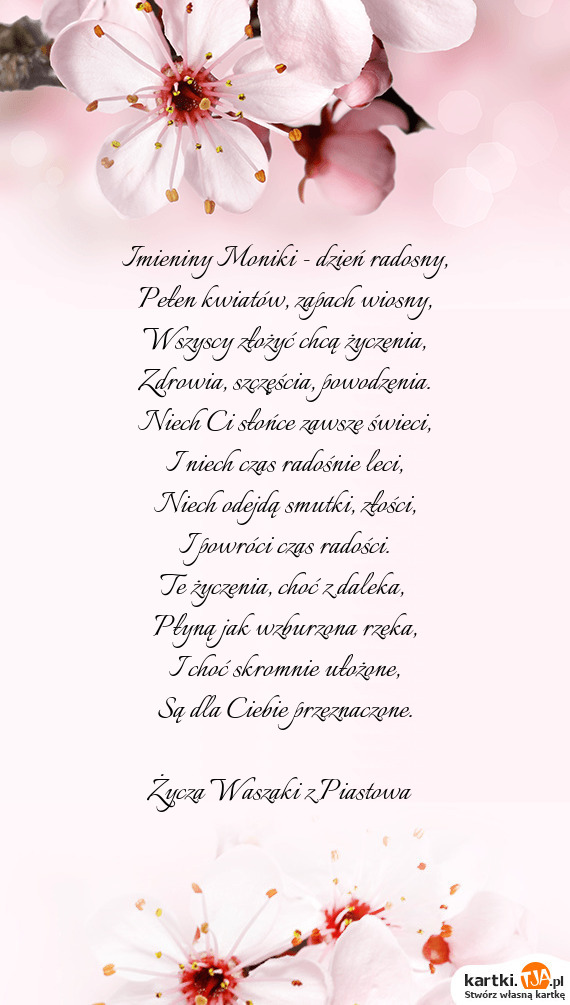 Imieniny Moniki - dzień radosny,
Pełen kwiatów, zapach wiosny,
Wszyscy złożyć chcą życzenia,
Zdrowia, szczęścia, powodzenia.
Niech Ci słońce zawsze świeci,
I niech czas radośnie leci,
Niech odejdą smutki, złości,
I powróci czas radości.
Te życzenia, choć z daleka,
Płyną jak wzburzona rzeka,
I choć skromnie ułożone,
Są dla Ciebie przeznaczone.
Życza Waszaki z Piastowa
kartki.TJA.pl
Stwórz własną kartkę